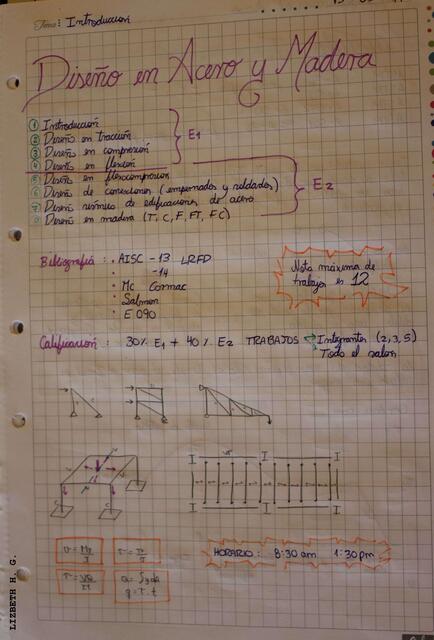 Tema: Introducción
Diseño en Acero y Madera
1 Introducción
2 Diseño en tracción
3 Diseño en compresión
4 Diseño en flexión
E1
5 Diseño en flexocompresión
6 Diseño de conexiones (empernados y soldados)
7 Diseño sísmico de edificaciones de acero
8 Diseño en madera (T, C, F, FT, FC)
E2
Bibliografía : • AISC - 13 LRFD
-14
• Mc Cormac
• Salmon
• E 090
Nota máxima de
trabajos es 12
Calificación : 30% E1 + 40% E2 TRABAJOS Integrantes (2, 3, 5)
Todo el salón
I I I
I I I
HORARIO : 8:30 am 1:30 pm
LIZBETH H. G.